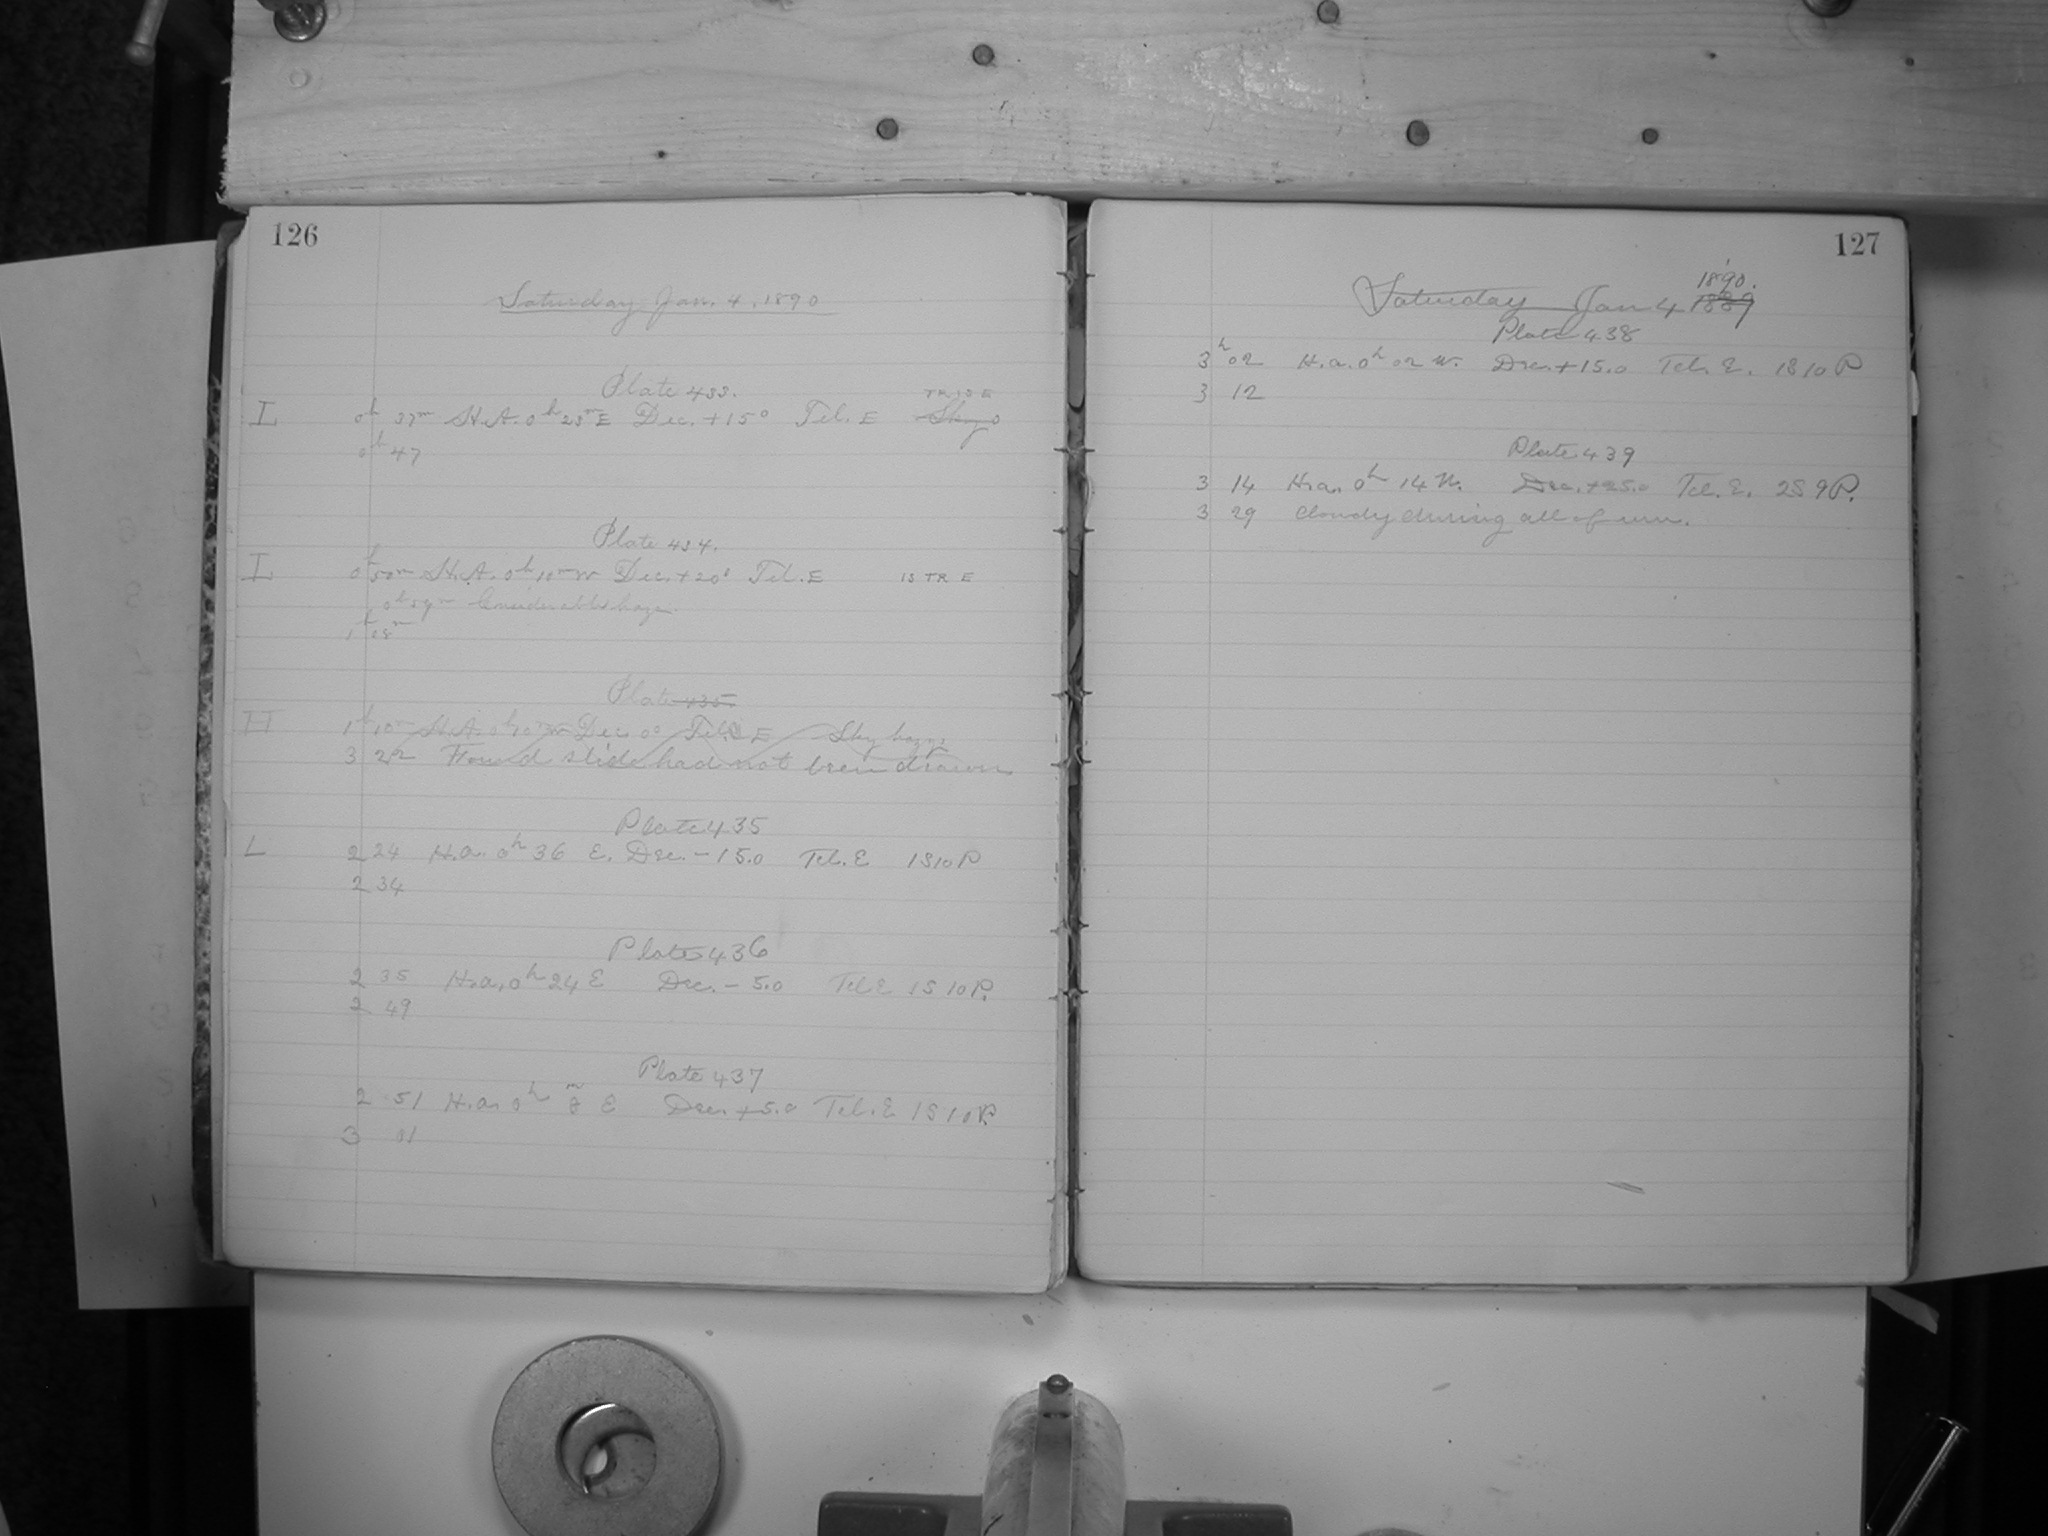 126
Saturday Jan. 4, 1890
Plate 433.
TR IS E
I 0h 37m H.A. 0h 23m E Dec. +15° Tel. E
0h 47
Plate 434.
I 0h 50m H.A. 0h 10m W Dec. +20° Tel. E IS TR E
0h 59m Considerable haze.
1h 28m
Plate 435.
H 1h 10m H.A. Dec. 0° Tel. E Sky hazy
3 22 Found slide had not been drawn
Plate 435
L 2 24 H.a. 0h 36 E. Dec. - 15.0 Tel. E 1S10P
2 34
Plate 436
2 35 H.a. 0h 24 E Dec. - 5.0 Tel E 1S 10P.
2 49
Plate 437
2 51 H.a. 0h 8m E Dec. +5.0 Tel. E 1S 10P.
3 01
127
1890.
Saturday Jan 4 1889
Plate 438
3h 02 H.a. 0h 02 W. Dec. +15.0 Tel. E. 1S 10P
3 12
Plate 439
3 14 H.a. 0h 14 W. Dec. +25.0 Tel. E. 2S 9P.
3 29 Cloudy during all of run.